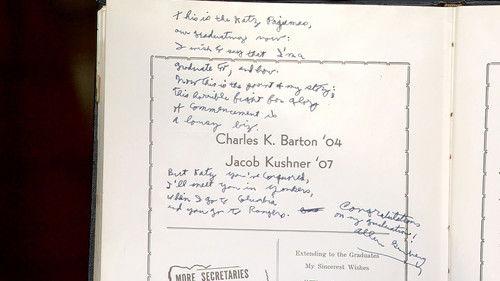 This is the Katz Pajamas,
our graduating now:
I wish to say that I'm a
graduate G, and how.
Now this is the point of my story;
This horrible fight for glory
of Commencement is
a lousy biz.
Charles K. Barton '04
Jacob Kushner '07
But Katz you've conquered,
I'll meet you in Yonkers,
when I go to Columbia
and you go to Rutgers.
Congratulations
on my graduation!
Allen Ginsberg
Extending to the Graduates
My Sincerest Wishes
MORE SECRETARIES